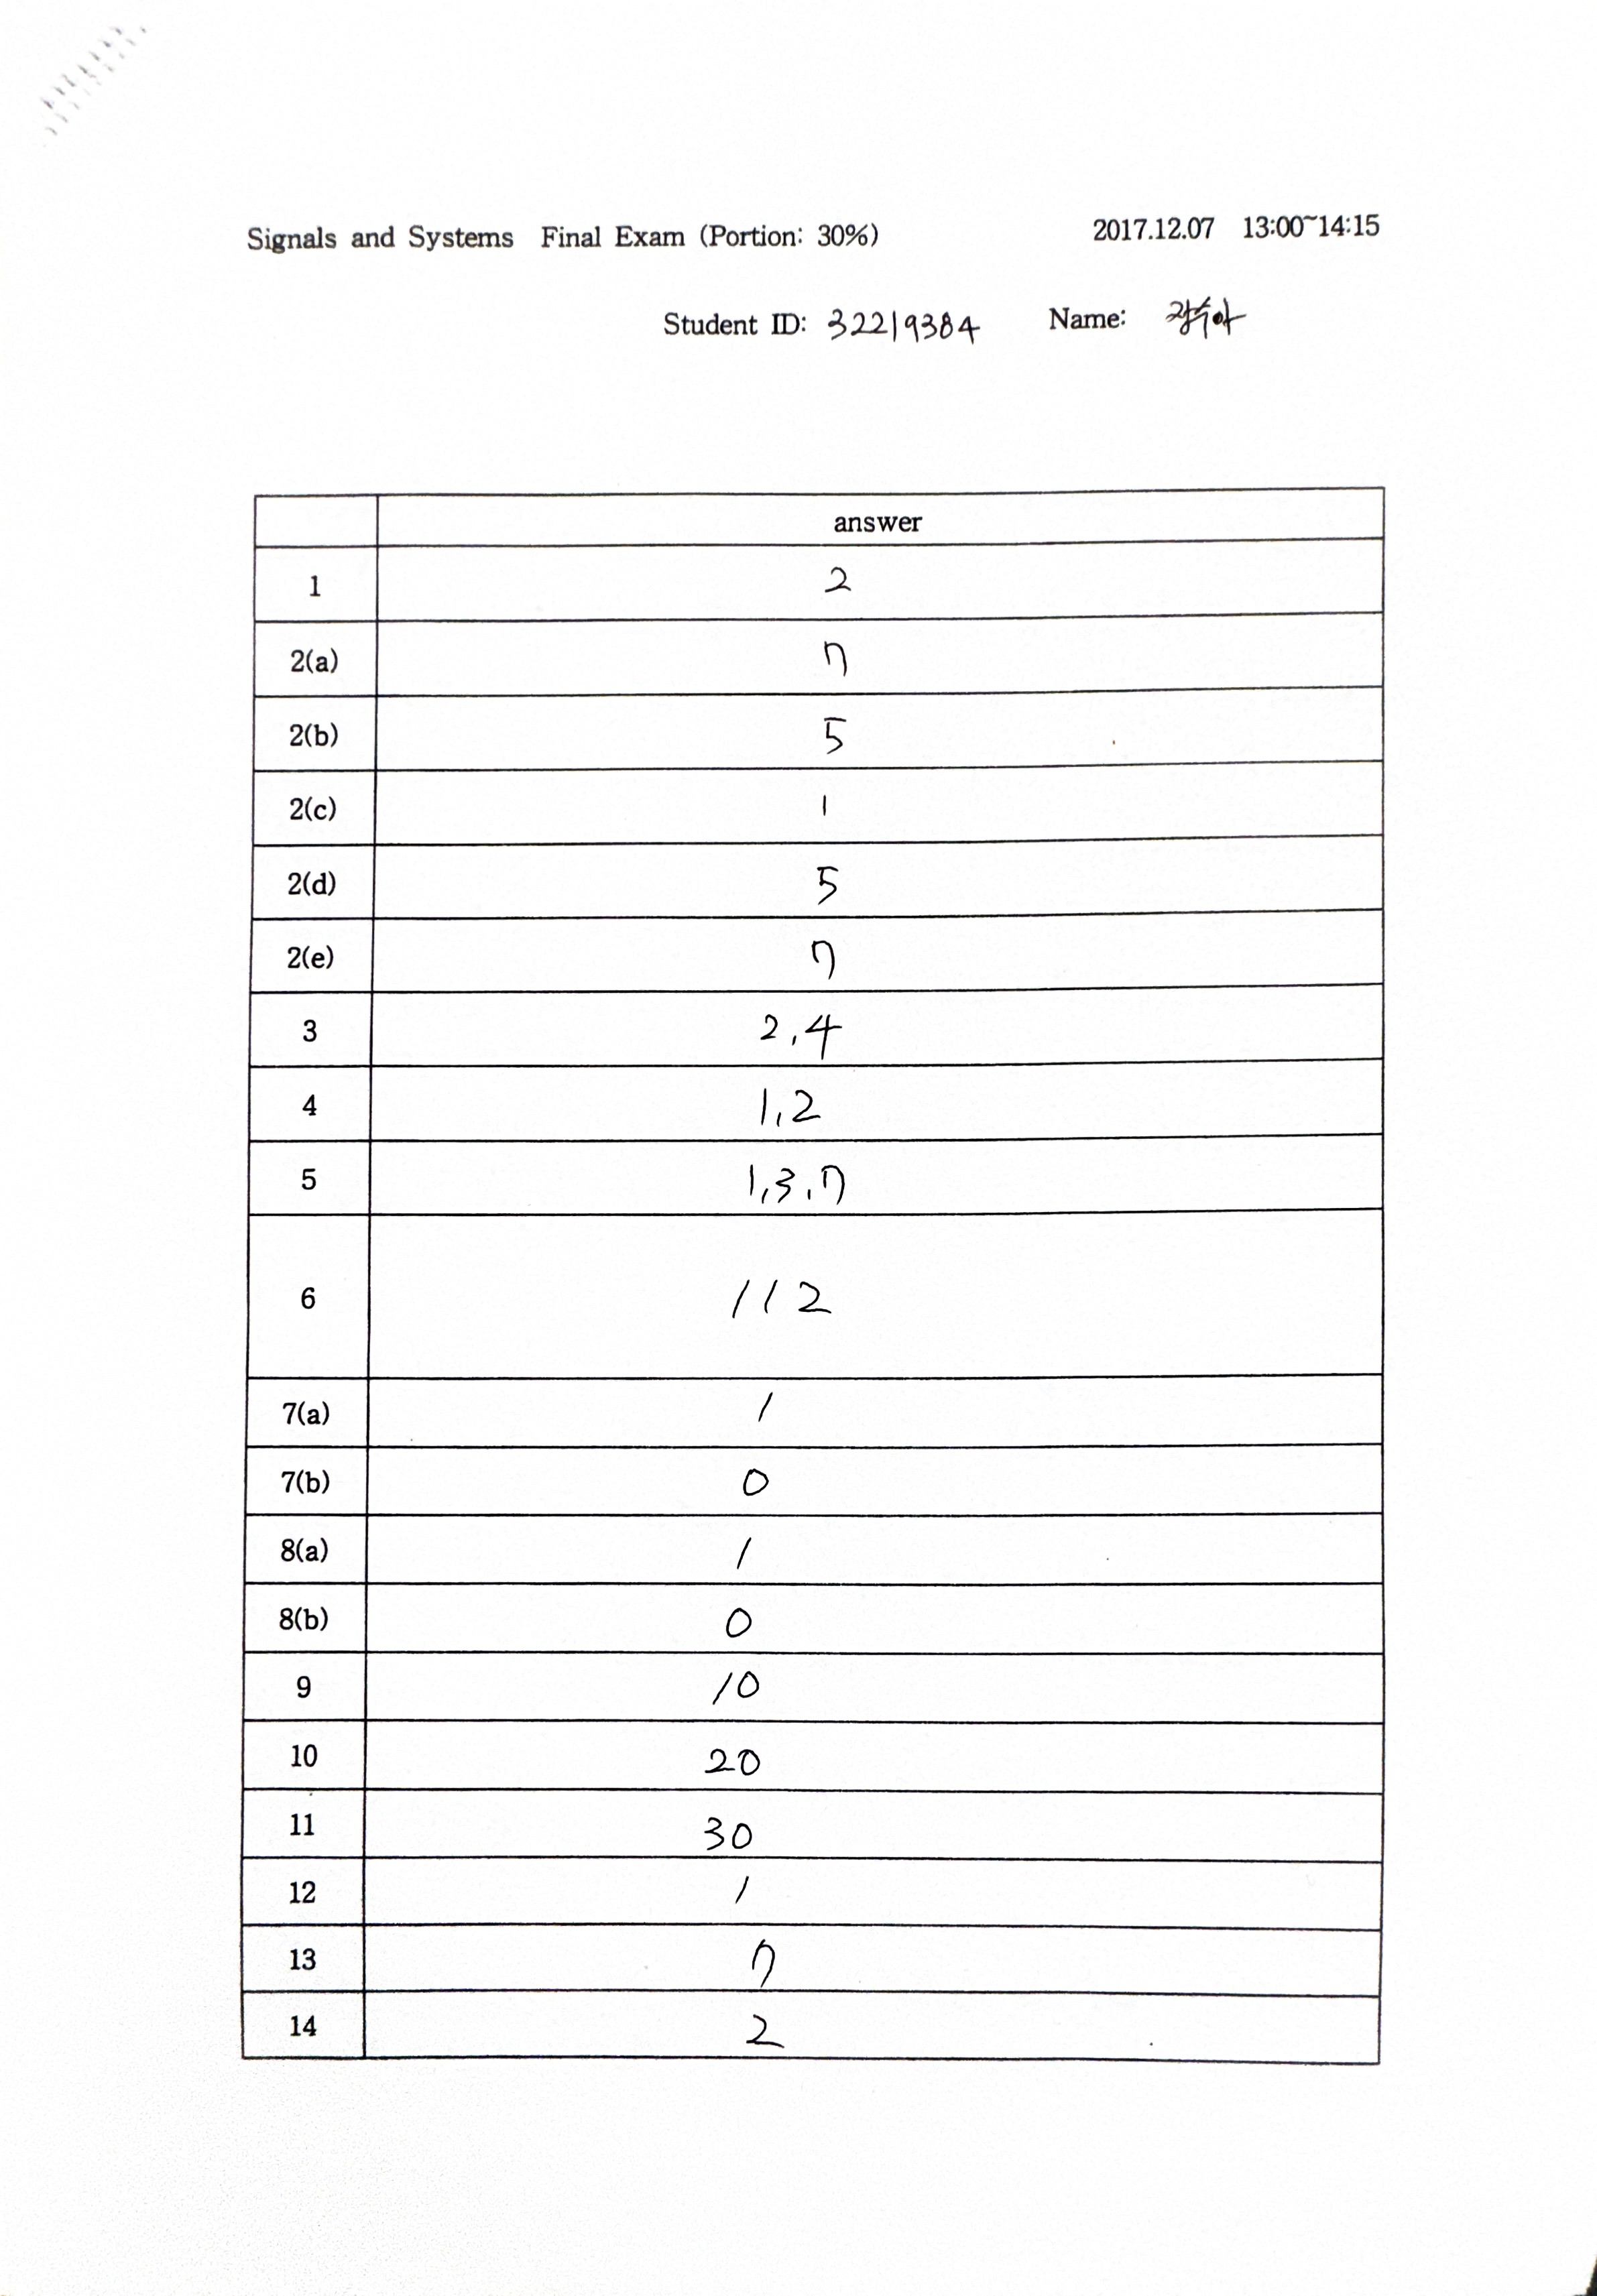 Signals and Systems Final Exam (Portion: 30%) 2017.12.07 13:00~14:15
Student ID: 32219384 Name:
answer
1 2
2(a) 7
2(b) 5
2(c) 1
2(d) 5
2(e) 7
3 2,4
4 1,2
5 1,3,7
6 112
7(a) 1
7(b) 0
8(a) 1
8(b) 0
9 10
10 20
11 30
12 1
13 7
14 2